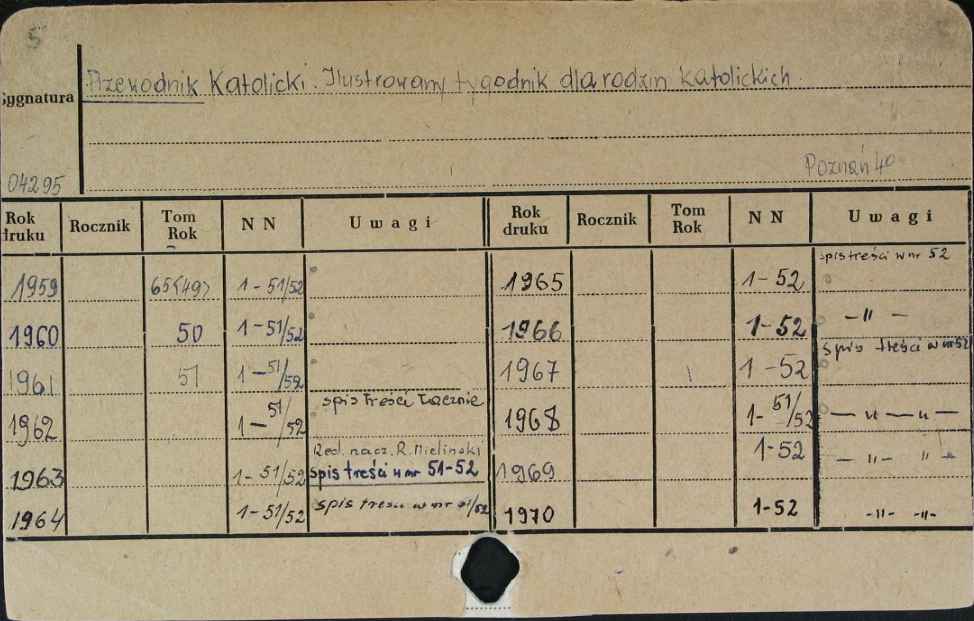 5
Przewodnik Katolicki. Ilustrowany tygodnik dla rodzin katolickich.
Sygnatura
Poznań 40
04295
Rok druku Rocznik Tom Rok N N Uwagi Rok druku Rocznik Tom Rok N N Uwagi
1959 65(49) 1-51/52 1965 1-52 spis treści w nr 52
1960 50 1-51/52 1966 1-52 -"-
1961 51 1-51/52 1967 1-52 spis treści w nr 52
1962 1-51/52 spis treści łącznie 1968 1-51/52 -"- -"-
1963 1-51/52 Red. nacz. R. Mieliński spis treści w nr 51-52 1969 1-52 -"- "-
1964 1-51/52 spis treści w nr 51/52 1970 1-52 -"- -"-